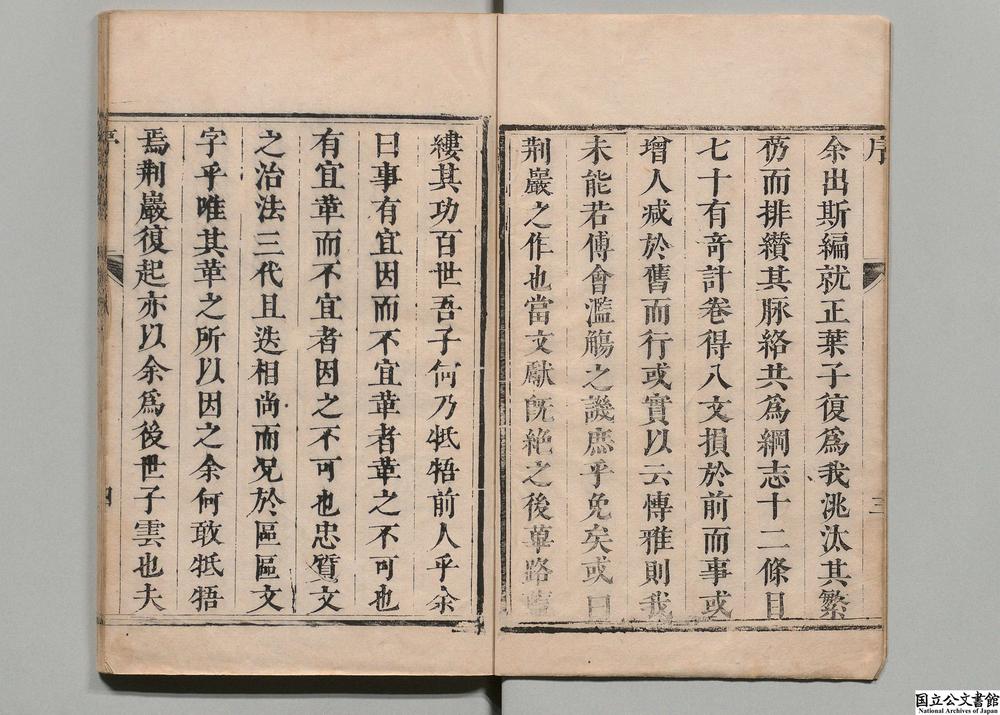 序
三
余出斯編就正葉子復爲我洮汰其繁
芿而排纘其脉絡共爲綱志十二條目
七十有竒計卷得八文損於前而事或
增人减於舊而行或實以云愽雅則我
未能若傅會濫觴之譏庶乎免矣或曰
荆巖之作也當文獻旣絶之後蓽路藍
縷其功百世吾子何乃牴牾前人乎余
曰事有宜因而不宜革者革之不可也
有宜革而不宜者因之不可也忠質文
之治法三代且迭相尚而况於區區文
字乎唯其革之所以因之余何敢牴牾
焉荆巖復起亦以余爲後世子雲也夫
序
四
国立公文書館
National Archives of Japan